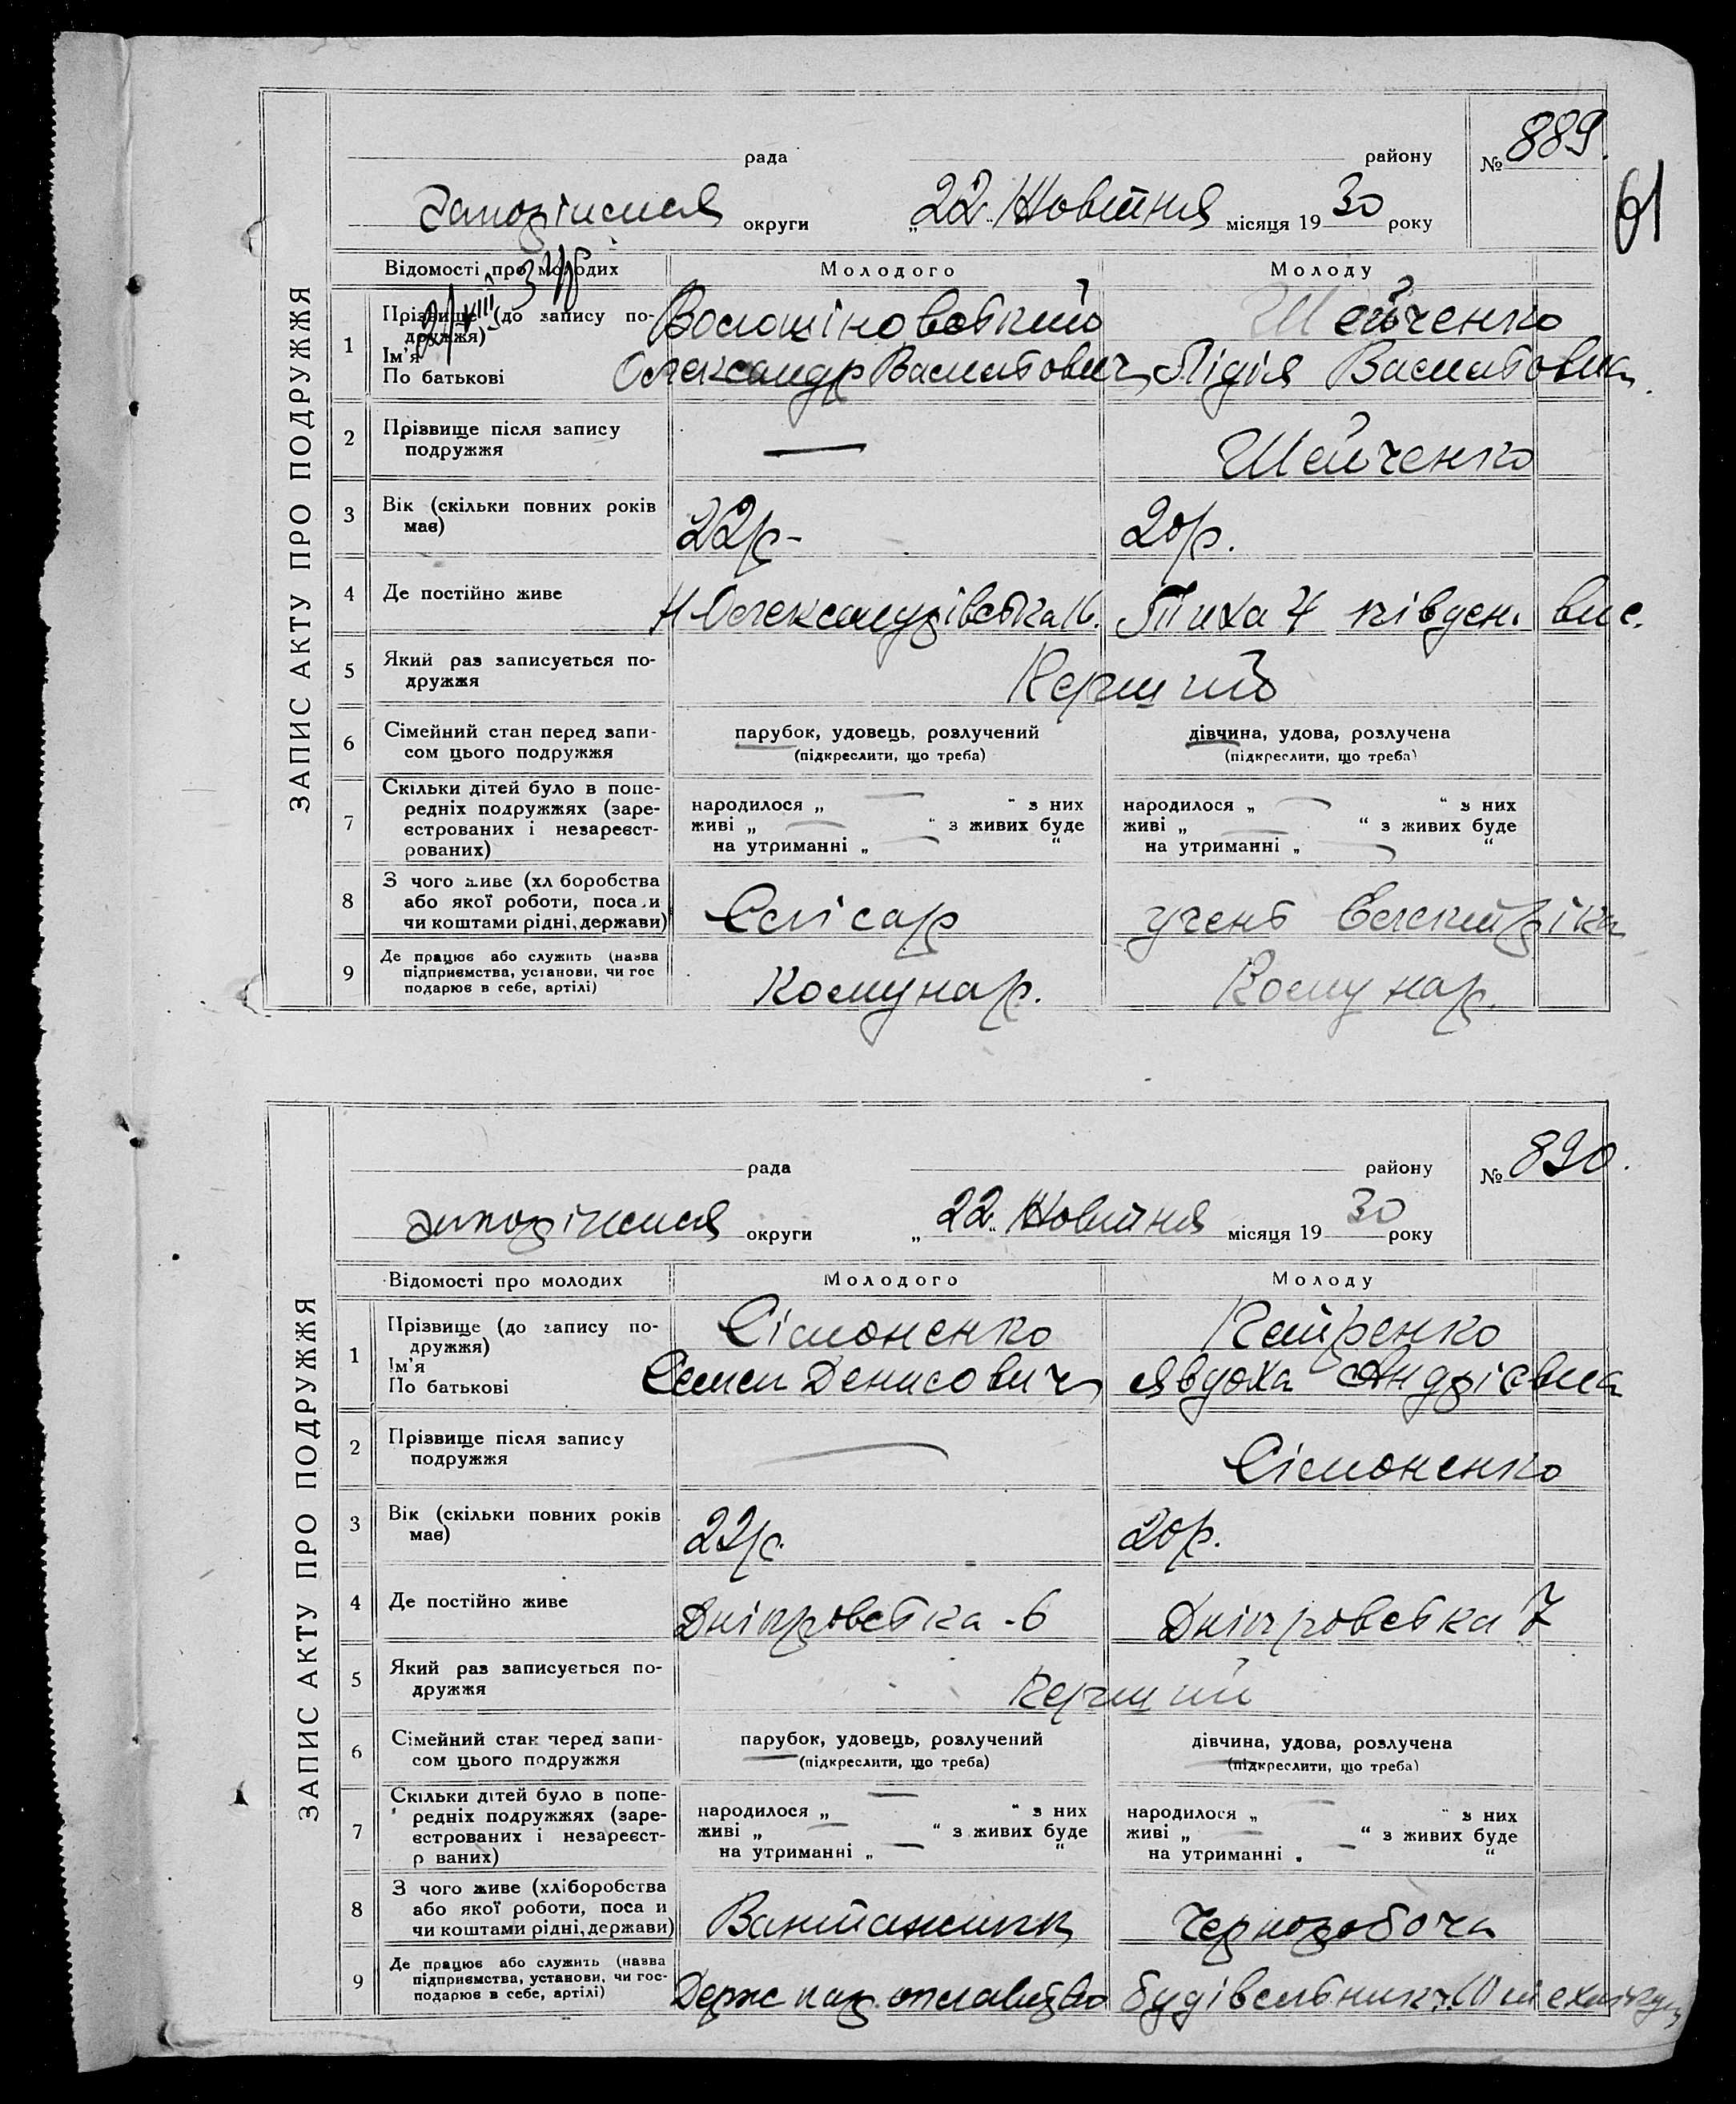 рада району № 889.
61
Запорізька округи „22“ Жовтня місяця 1930 року
ЗАПИС АКТУ ПРО ПОДРУЖЖЯ
Відомості про молодих Молодого Молоду
1 Прізвище (до запису по-
дружжя)
Ім'я
По батькові
Волошіновський Шейченко
Олександр Васильович Лідія Васильовна
2 Прізвище після запису
подружжя
— Шейченко
3 Вік (скільки повних років
має)
22р- 20р.
4 Де постійно живе
Н Олександрівська 16. Тиха 4 півден. вис.
5 Який раз записується по-
дружжя
Перший
6 Сімейний стан перед запи-
сом цього подружжя
парубок, удовець, розлучений дівчина, удова, розлучена
(підкреслити, що треба) (підкреслити, що треба)
7 Скільки дітей було в попе-
редніх подружжях (заре-
єстрованих і незареєст-
рованих)
народилося „ — “ з них народилося „ — “ з них
живі „ — “ з живих буде живі „ — “ з живих буде
на утриманні „ — “ на утриманні „ — “
8 З чого живе (хл боробства
або якої роботи, поса и
чи коштами рідні, держави)
Слісар учень Електріка
9 Де працює або служить (назва
підприємства, установи, чи гос
подарює в себе, артілі)
Комунар. Комунар.
рада району № 890.
Запорізька округи „22“ Жовтня місяця 1930 року
ЗАПИС АКТУ ПРО ПОДРУЖЖЯ
Відомості про молодих Молодого Молоду
1 Прізвище (до запису по-
дружжя)
Ім'я
По батькові
Сімоненко Петренко
Семен Денисович Явдоха Андрієвна
2 Прізвище після запису
подружжя
— Сімоненко
3 Вік (скільки повних років
має)
22р. 20р.
4 Де постійно живе
Дніпровська - 6 Дніпровська 7
5 Який раз записується по-
дружжя
перший
6 Сімейний стан перед запи-
сом цього подружжя
парубок, удовець, розлучений дівчина, удова, розлучена
(підкреслити, що треба) (підкреслити, що треба)
7 Скільки дітей було в попе-
редніх подружжях (заре-
єстрованих і незареєст-
р ваних)
народилося „ — “ з них народилося „ — “ з них
живі „ — “ з живих буде живі „ — “ з живих буде
на утриманні „ — “ на утриманні „ — “
8 З чого живе (хліборобства
або якої роботи, поса и
чи коштами рідні, держави)
Вантажник Чернороboча
9 Де працює або служить (назва
підприємства, установи, чи гос-
подарює в себе, артілі)
Держ пар. будівельник